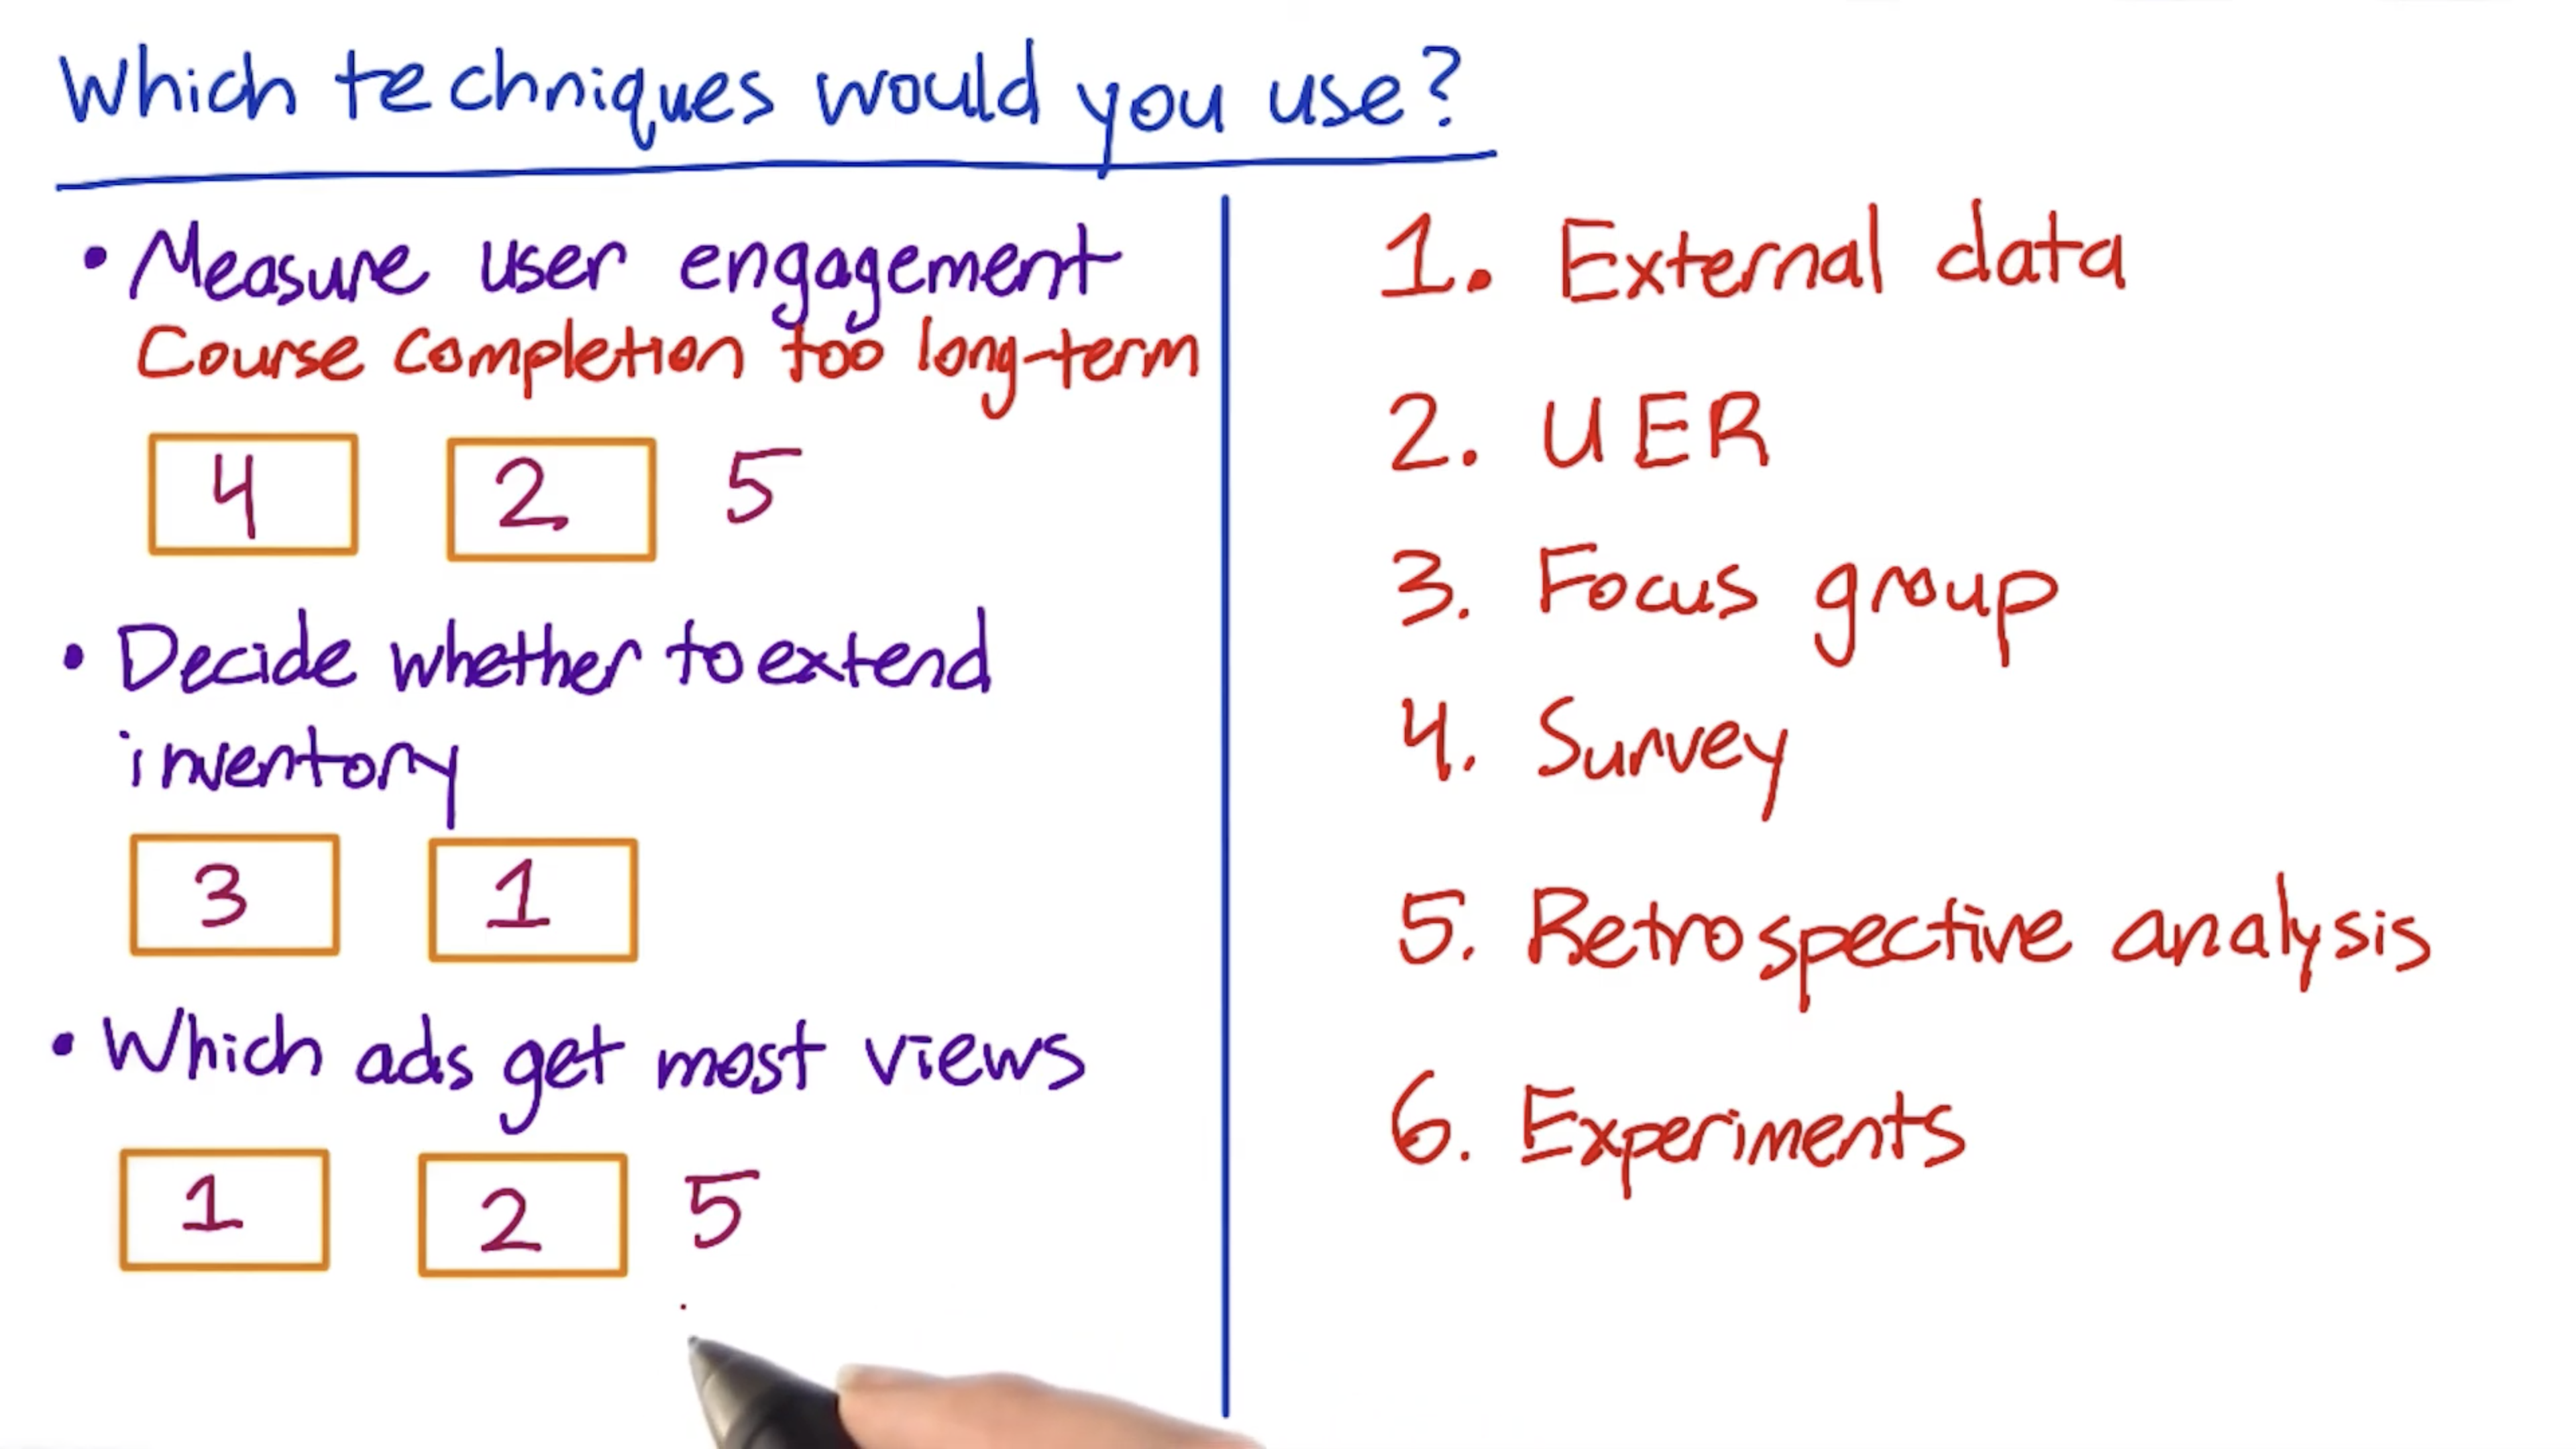 Which techniques would you use?
• Measure user engagement
Course completion too long-term
4 2 5
• Decide whether to extend
inventory
3 1
• Which ads get most views
1 2 5
1. External data
2. UER
3. Focus group
4. Survey
5. Retrospective analysis
6. Experiments